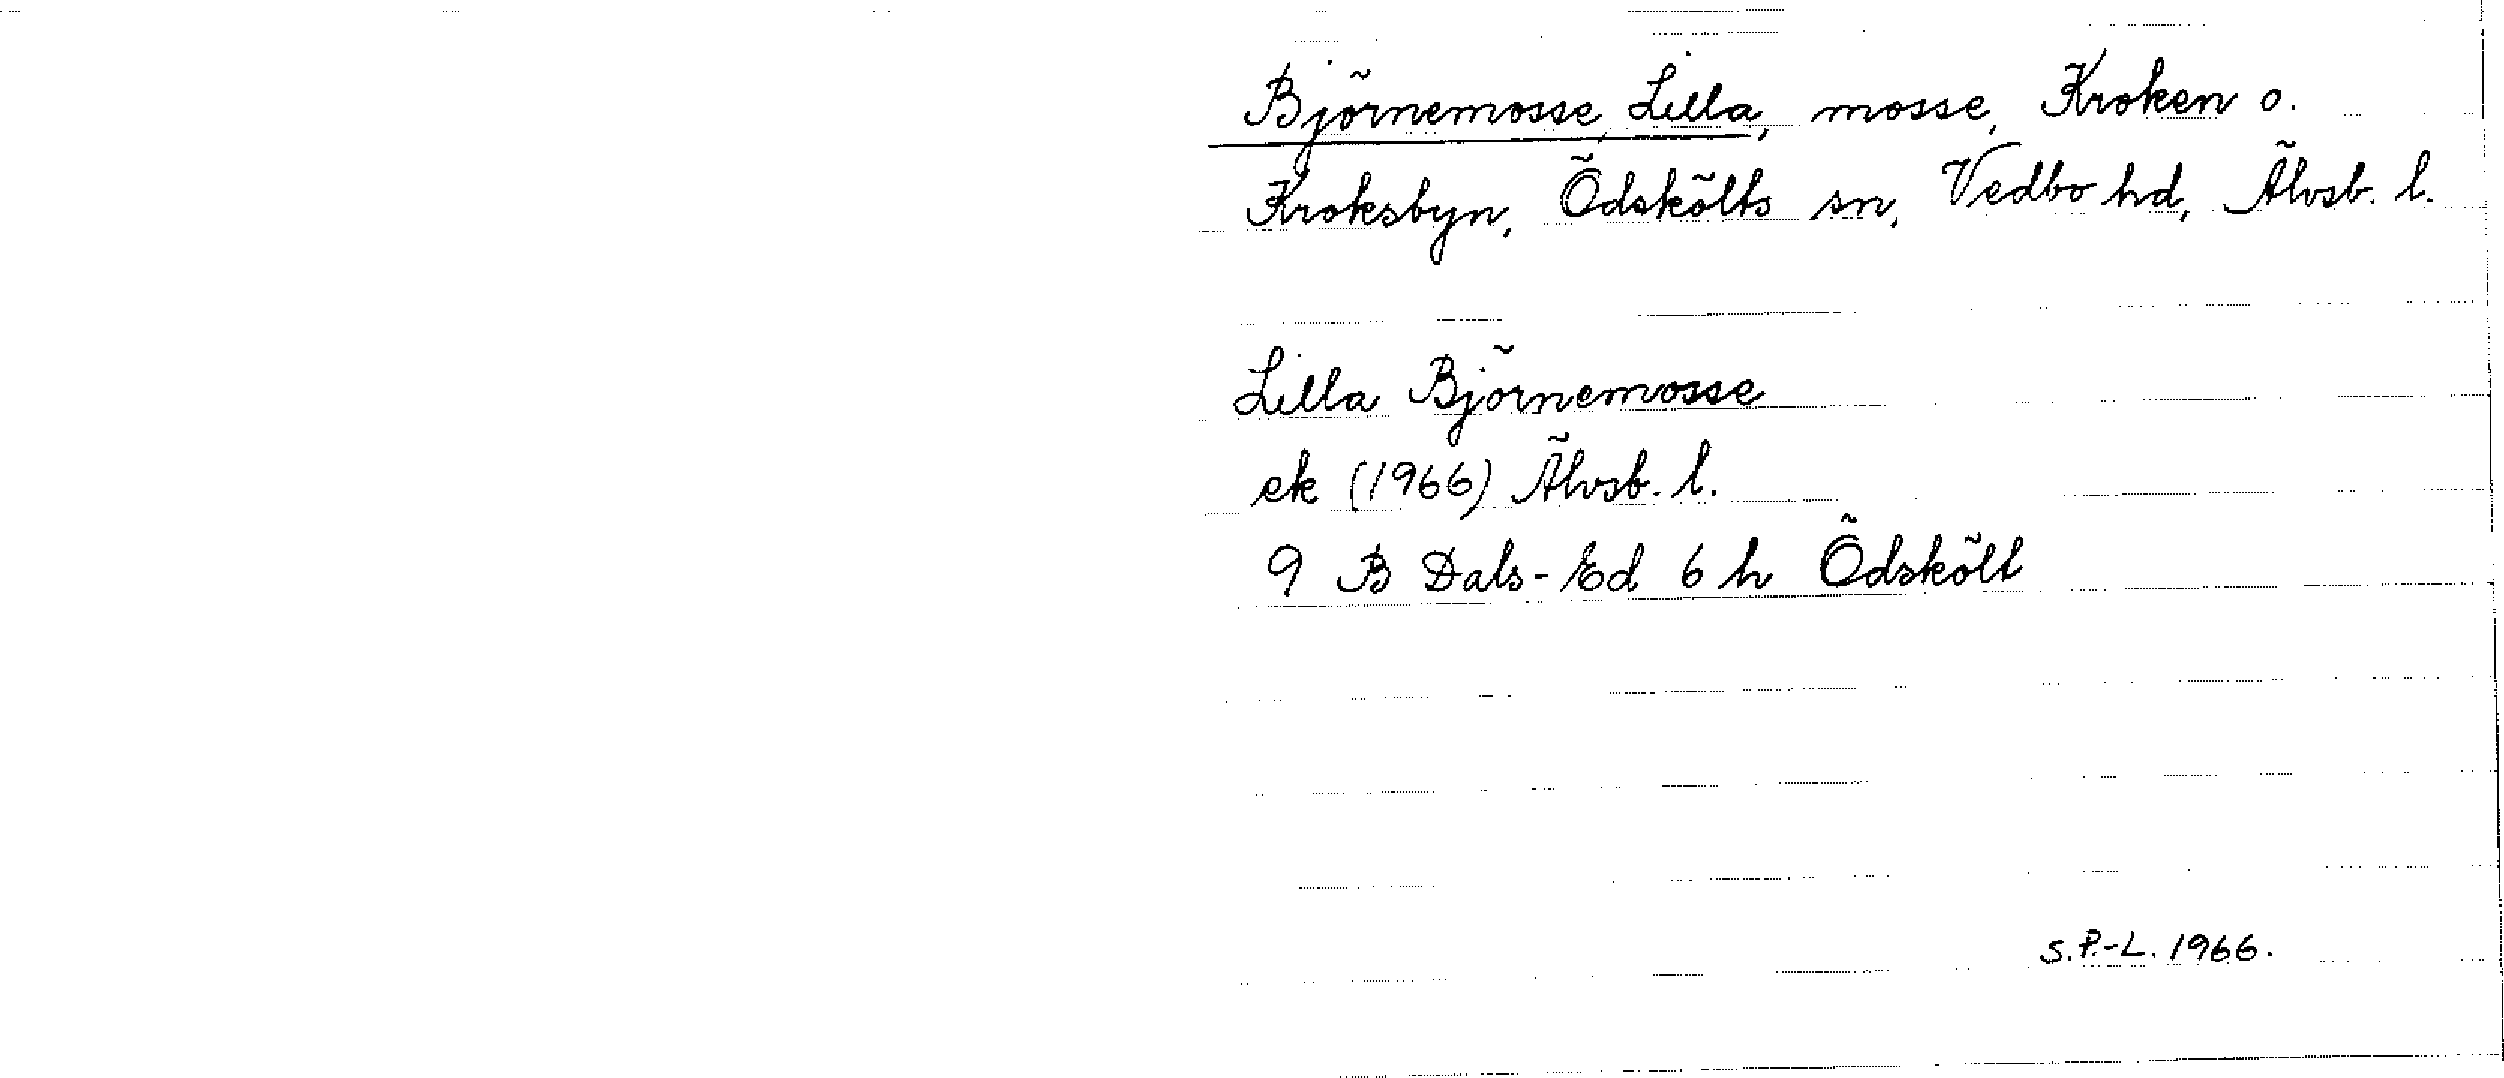 Björnemosse, Lilla, mosse, Kroken o.
Kroksbyn, Ödskölts sn, Vedbo hd, Älvsb. l.
Lilla Björnemosse
ek (1966) Älvsb. l.
9 B Dals-Ed 6 h Ödskölt
S.P.-L. 1966.